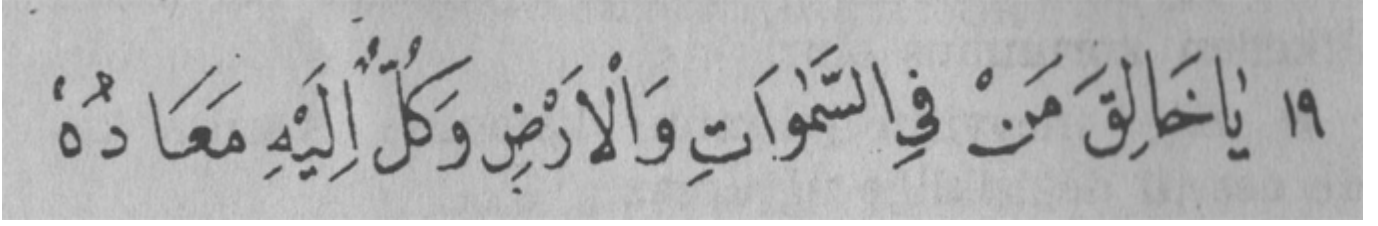 ١٩ يَا خَالِقَ مَنْ فِي السَّمٰوَاتِ وَالْاَرْضِ وَكُلٌّ اِلَيْهِ مَعَادُهُ